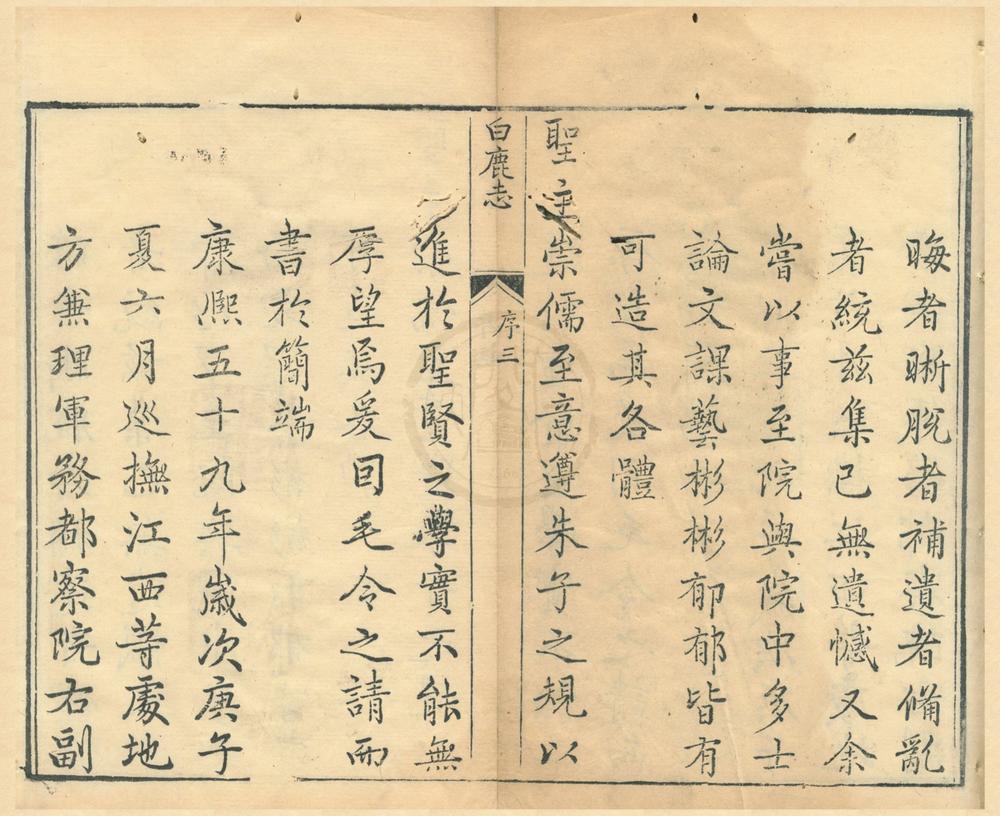 晦者晰脫者補遺者備亂
者統兹集已無遺憾又余
嘗以事至院與院中多士
論文課藝彬彬郁郁皆有
可造其各體
聖主崇儒至意遵朱子之規以
白鹿志
序三
進於聖賢之學實不能無
厚望焉爰囙毛令之請而
書於簡端
康熙五十九年歲次庚子
夏六月巡撫江西等處地
方兼理軍務都察院右副